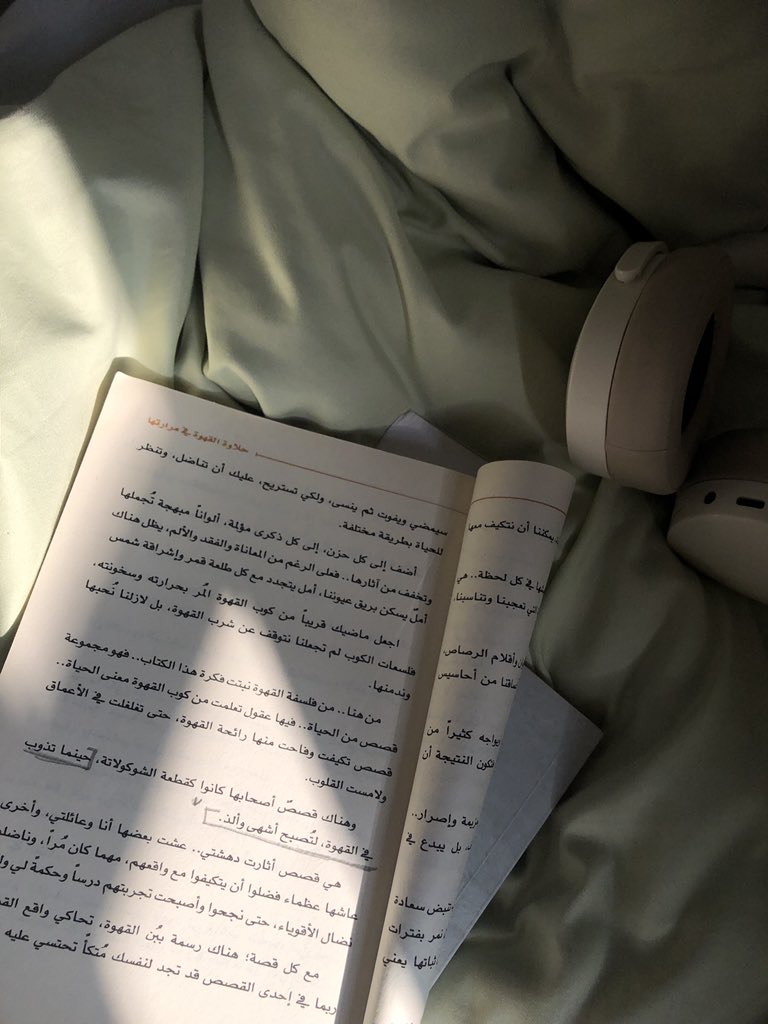 يمكننا أن نتكيف معها
في كل لحظة.. هي
تعجبنا وتناسبنا.
وأقلام الرصاص،
من أحاسيس
يواجه كثيراً من
النتيجة أن
وإصرار..
بل يبدع في
سعادة
بفترات
يعني
حلاوة القهوة في مرارتها
سيمضي ويفوت ثم ينسى، ولكي تستريح، عليك أن تناضل، وتنظر
للحياة بطريقة مختلفة.
أضف إلى كل حزن، إلى كل ذكرى مؤلمة، ألواناً مبهجة تُجملها
وتخفف من آثارها.. فعلى الرغم من المعاناة والفقد والألم، يظل هناك
أملٌ يسكن بريق عيوننا، أمل يتجدد مع كل طلعة قمر وإشراقة شمس
اجعل ماضيك قريباً من كوب القهوة المُر بحرارته وسخونته،
فلسعات الكوب لم تجعلنا نتوقف عن شرب القهوة، بل لازلنا نُحبها
وندمنها.
من هنا.. من فلسفة القهوة نبتت فكرة هذا الكتاب.. فهو مجموعة
قصص من الحياة.. فيها عقول تعلمت من كوب القهوة معنى الحياة..
قصص تكيفت وفاحت منها رائحة القهوة، حتى تغلغلت في الأعماق
ولامست القلوب.
وهناك قصصٌ أصحابها كانوا كقطعة الشوكولاتة، حينما تذوب
في القهوة، لتُصبح أشهى وألذ.
هي قصص أثارت دهشتي.. عشت بعضها أنا وعائلتي، وأخرى
عاشها عظماء فضلوا أن يتكيفوا مع واقعهم، مهما كان مُراً،
نضال الأقوياء، حتى نجحوا وأصبحت تجربتهم درساً وحكمةً لي
مع كل قصة؛ هناك رسمة ببُن القهوة، تحاكي واقع
ربما في إحدى القصص قد تجد لنفسك مُتكأً تحتسي عليه